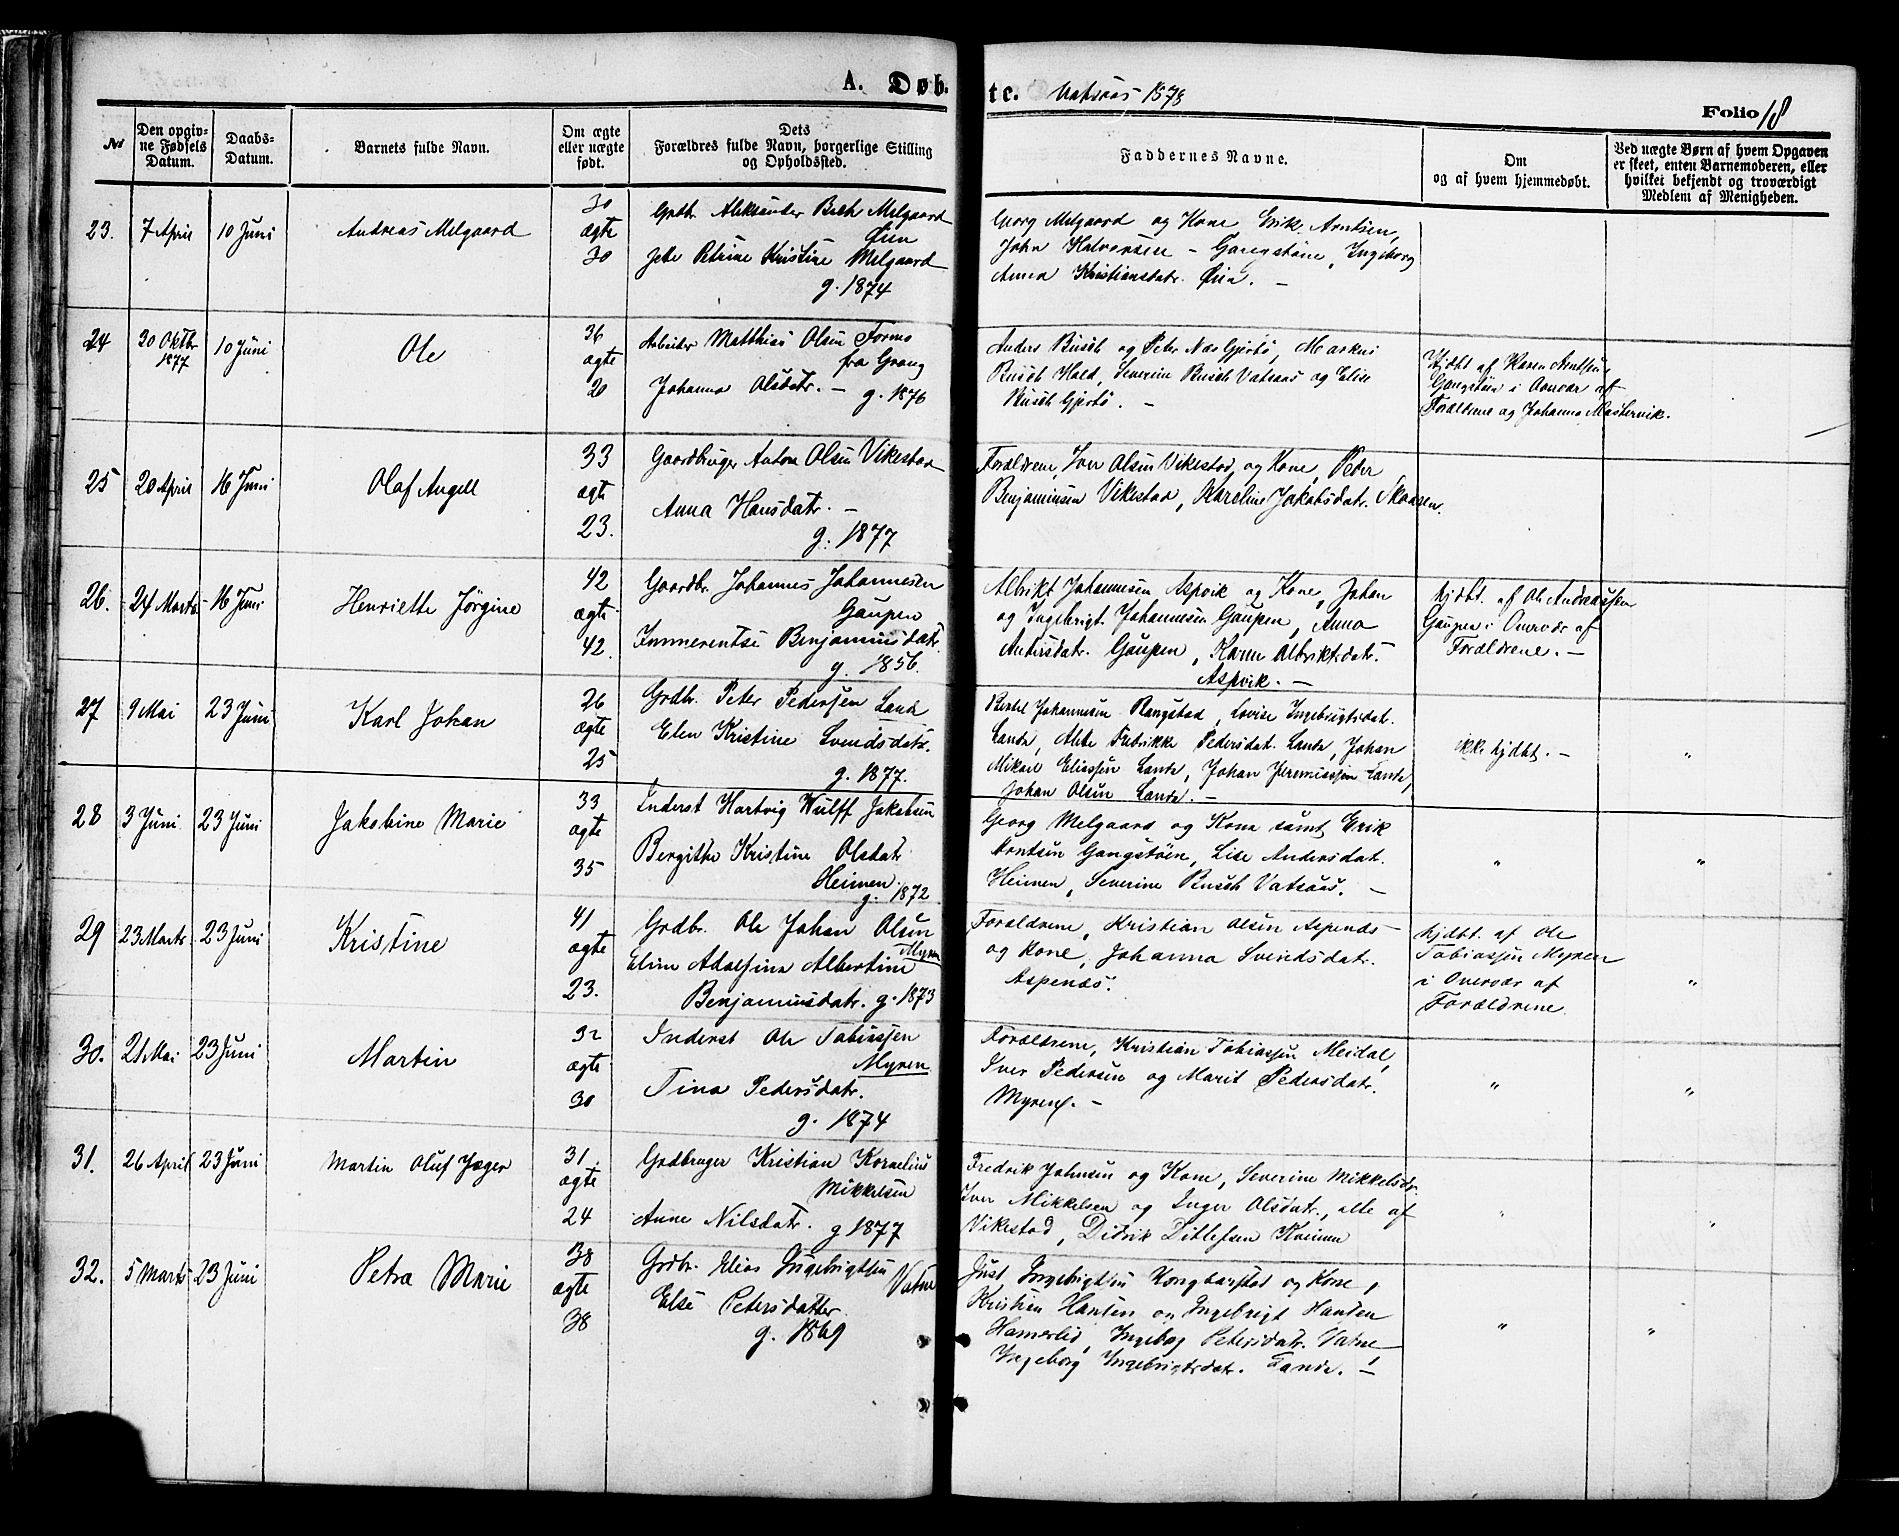 A. Døb-
te. Vatsaas 1878
Folio 18
No
Den opgiv-
ne Fødsels
Datum.
Daabs-
Datum.
Barnets fulde Navn.
Om ægte
eller uægte
født.
Dets
Forældres fulde Navn, borgerlige Stilling
og Opholdssted.
Faddernes Navne.
Om
og af hvem hjemmedøbt.
Ved uægte Børn af hvem Opgaven
er skeet, enten Barnemoderen, eller
hvilket bekjendt og troværdigt
Medlem af Menigheden.
23. 7 April 10 Juni Andreas Melgaard
30
ægte
30
Grdbr. Aleksander Bech Melgaard
Øien
Petrine Kristine Melgaard
g. 1874
Georg Melgaard og Kone, Erik Arntsen,
John Halvorsen - Gangstøen, Ingeborg
Anna Kristiansdatr. Øien. -
24 30 Oktbr 1877 10 Juni Ole
36
ægte
20
Arbeider Matthias Olsen Formo
fra Grong
Johanna Olsdatr. - g. 1876
Anders Busch og Peter Næs Gjerbø, Markus
Busch Hald, Severine Busch Vatsaas og Elise
Busch Gjerbø. -
Hjdbt af Karen Arntsen,
Gangstøen i Overvær af
Forældrene og Johanna Mastervik.
25 20 April 16 Juni Olaf Angell
33
ægte
23.
Gaardbruger Anton Olsen Vikestad
Anna Hansdatr. -
g. 1877
Forældrene, Iver Olsen Vikestad og Kone, Peter
Benjaminsen Vikestad, Karoline Jakobsdatr. Skaaren.
26. 24 Marts 16 Juni Henriette Jørgine
42
ægte
42.
Gaardbr. Johannes Johannesen
Gaupen
Immerentse Benjaminsdatr.
g. 1856.
Albrikt Johannesen Aspvik og Kone, Johan
og Ingebrigt Johannesen Gaupen, Anna
Andersdatr. Gaupen, Karen Albriktsdatr.
Aspvik. -
hjdbt. af Ole Andreassen
Gaupen i Overvær af
Forældrene. -
27 9 Mai 23 Juni Karl Johan
26
ægte
25
Grdbr. Peter Pedersen Lande
Elen Kristine Svendsdatr.
g. 1877.
Bertel Johannesen Rangstad, Lovise Ingebrigtsdat.
Lande, Fredrikke Pedersdat. Lande, Johan
Mikael Eliassen Lande, Johan Jeremiassen Lande,
Johan Olsen Lande. -
ikke hjdbt. - "
28 3 Juni. 23 Juni Jakobine Marie
33
ægte
35
Inderst Hartvig Wulff Jakobsen
Bergitte Kristine Olsdatr
Heimen.
g. 1872
Georg Melgaard og Kone samt Erik
Arntsen Gangstøen, Lise Andersdatr.
Heimen, Severine Busch Vatsaas. -
" "
29 23 Marts 23 Juni Kristine
41
ægte
23.
Grdbr. Ole Johan Olsen
Myren
Eline Adolfina Albertine
Benjaminsdatr. g. 1873
Forældrene, Kristian Olsen Aspenæs
og Kone, Johanna Svendsdatr.
Aspenæs.
hjdbt. af Ole
Tobiassen Myren
i Overvær af
Forældrene
"
30. 21 Mai 23 Juni Martin
32
ægte
30
Inderst Ole Tobiassen
Myren
Tina Pedersdatr.
g. 1874
Forældrene, Kristian Tobiassen Meidal,
Iver Pedersen og Marit Pedersdatr.
Myren. -
" "
31. 26 April 23 Juni Martin Oluf Jæger
31.
ægte
24
Grdbruger Kristian Kornelius
Mikkelsen
Anne Nilsdatr. g 1877
Fredrik Johnsen og Kone, Severine Mikkelsdr.
Iver Mikkelsen og Inger Olsdatr., alle af
Vikestad, Didrik Ditlefsen Kveinen
" "
32. 5 Marts 23 Juni Petra Marie
38
ægte
38
Grdbr. Elias Ingebrigtsen Vatne
Else Petersdatter.
g. 1869
Just Ingebrigtsen Kongbarstad og Kone,
Kristian Hansen og Ingebrigt Hansen
Hamerlid, Ingebog Petersdatr. Vatne,
Ingeborg Ingebrigtsdat. Lande. -
" "